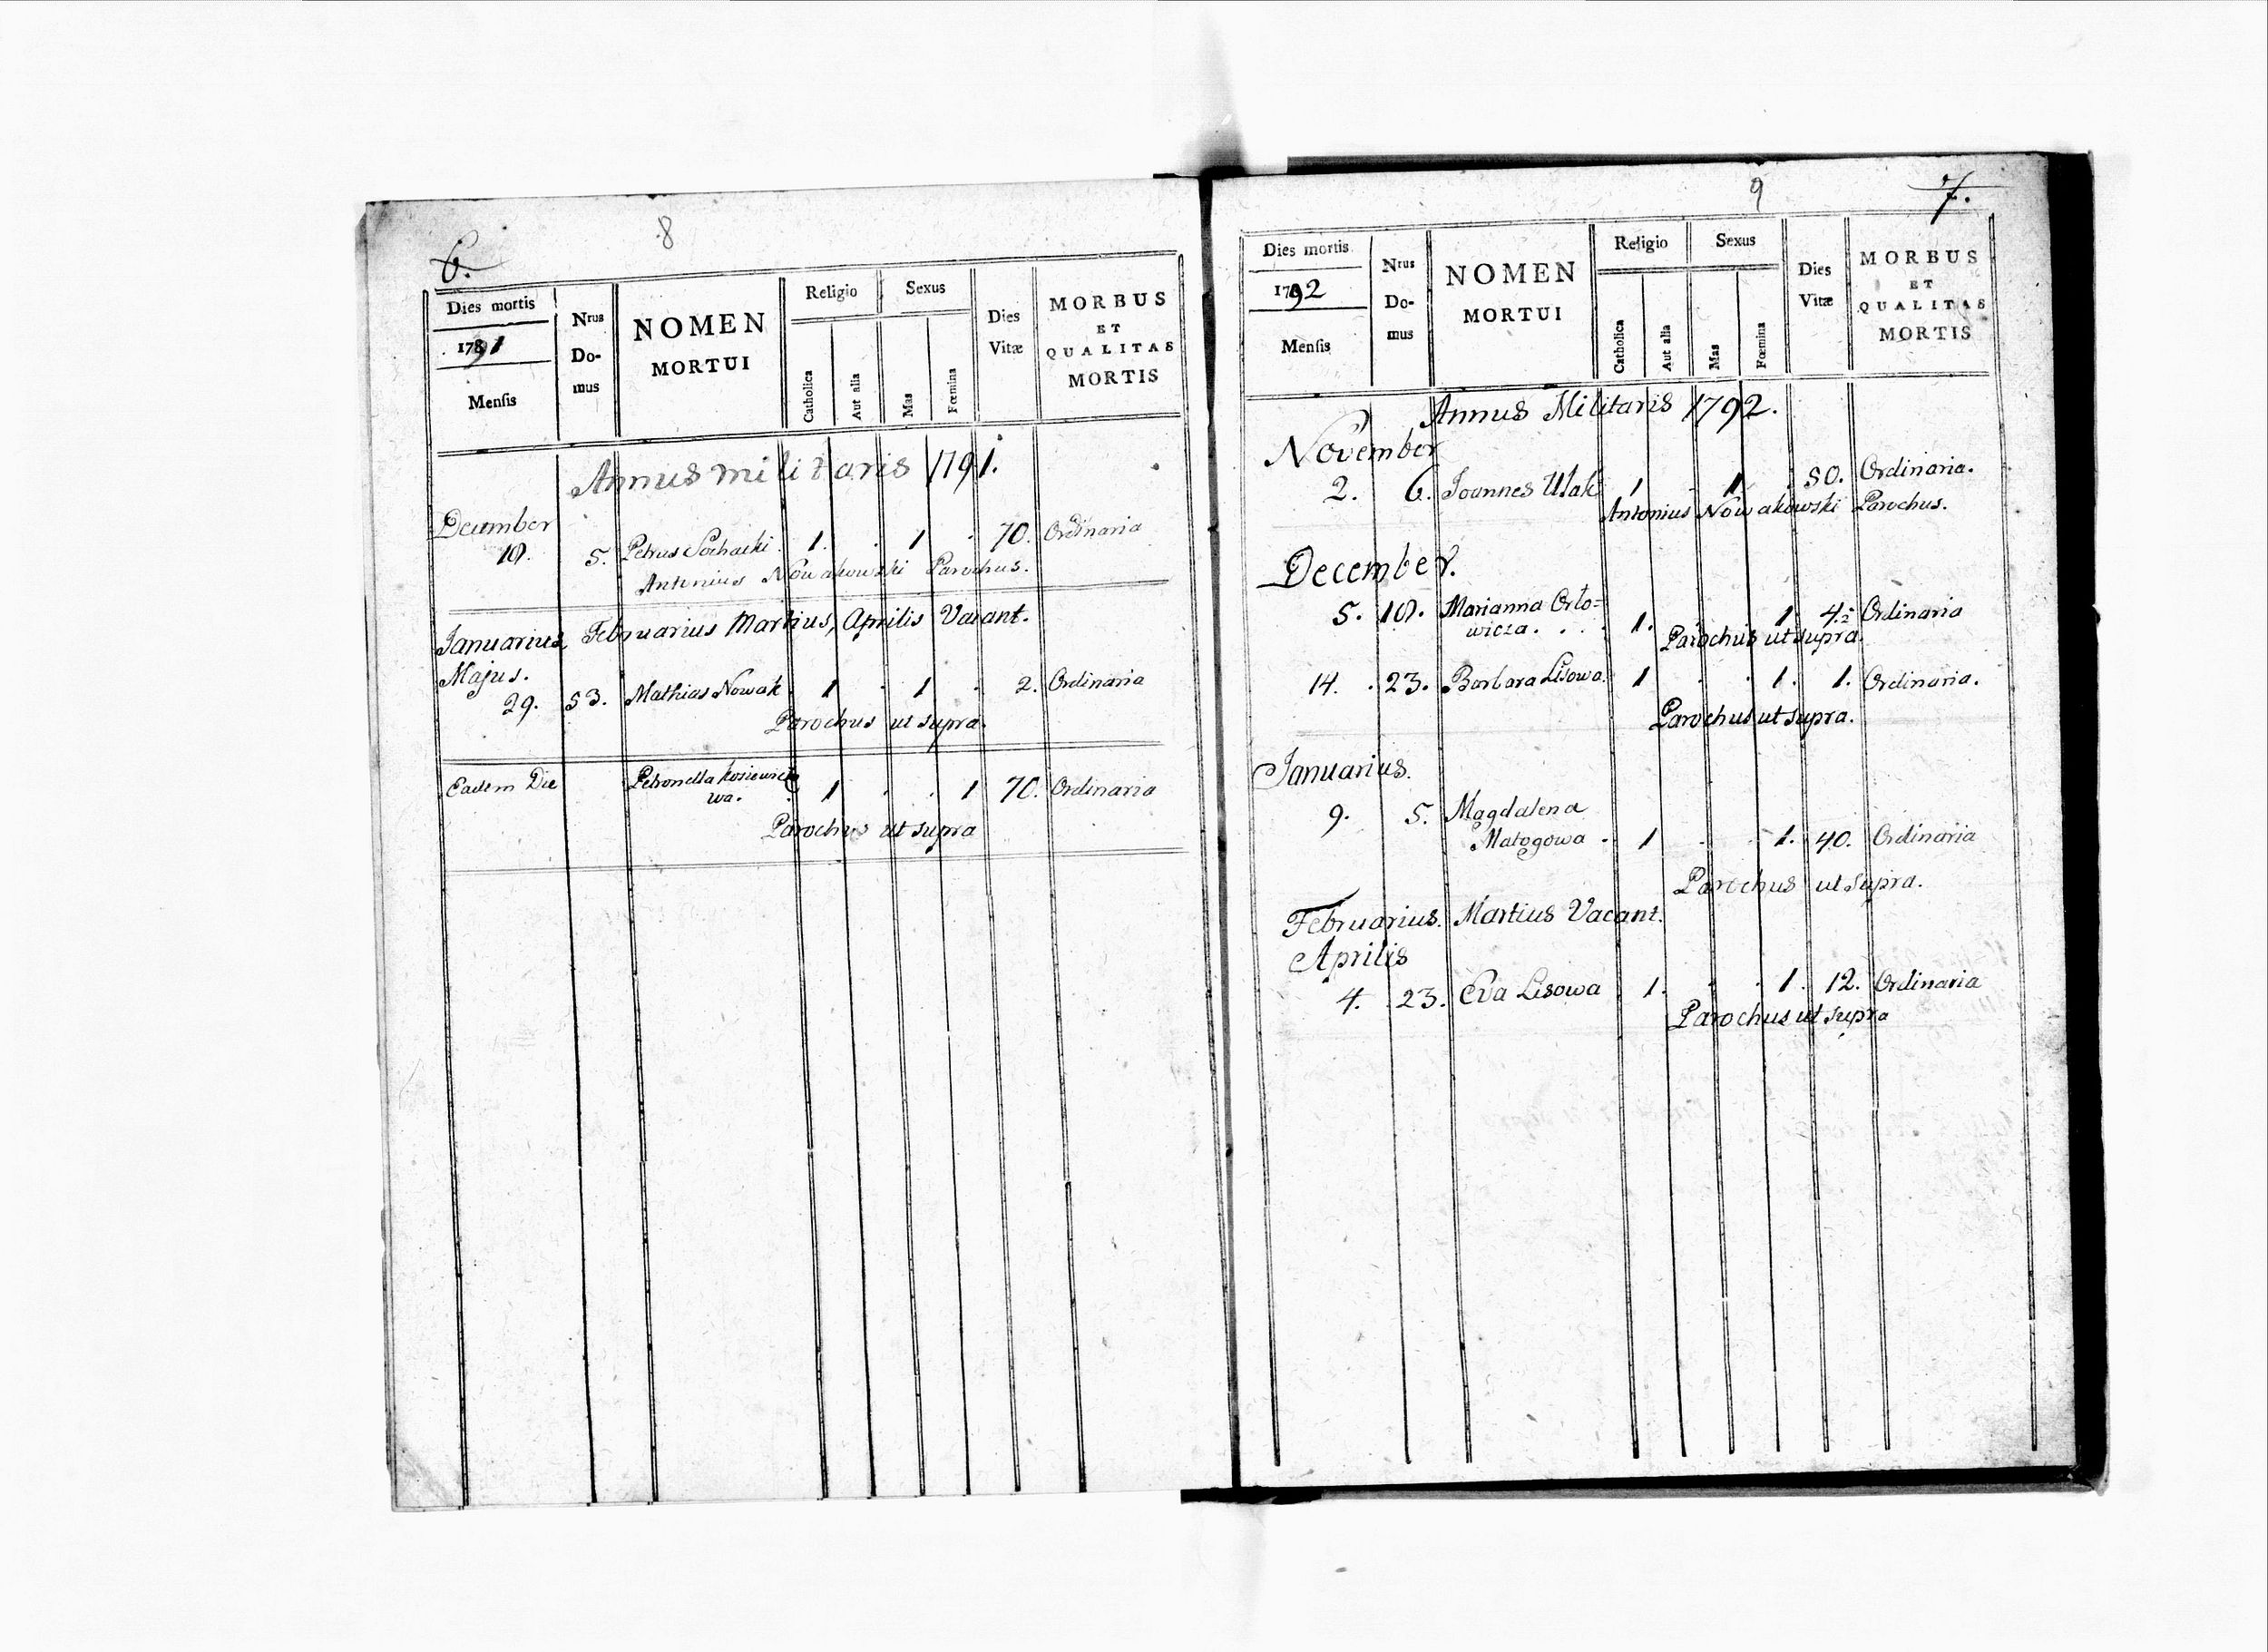 6. 8
Dies mortis
1791
Mensis
Nrus
Do-
mus
NOMEN
MORTUI
Religio
Catholica
Aut alia
Sexus
Mas
Fœmina
Dies
Vitæ
MORBUS
ET
QUALITAS
MORTIS
Annus militaris 1791.
December
10. 5. Petrus Sochacki 1. . 1 . 70. Ordinaria
Antonius Nowakowski Parochus.
Januarius, Februarius Martius, Aprilis Vacant.
Majus.
29. 53. Mathias Nowak 1 . 1 . 2. Ordinaria
Parochus ut supra.
Eadem Die Petronella 1 . . 1 70. Ordinaria
wa.
Parochus ut supra
9 7.
Dies mortis
1792
Mensis
Nrus
Do-
mus
NOMEN
MORTUI
Religio
Catholica
Aut alia
Sexus
Mas
Fœmina
Dies
Vitæ
MORBUS
ET
QUALITAS
MORTIS
Annus Militaris 1792.
November
2. 6. Joannes 1 . 1 . 50. Ordinaria.
Antonius Nowakowski Parochus.
December.
5. 10. Marianna Orło=
wicza. . . . 1. 1. Ordinaria
Parochus ut supra.
14. 23. Barbara Lisowa. 1 . . 1. 1. Ordinaria.
Parochus ut supra.
Januarius.
9. 5. Magdalena
Małogowa . 1 . . 1. 40. Ordinaria
Parochus ut supra.
Februarius. Martius Vacant.
Aprilis
4. 23. Eva Lisowa 1. . . 1. 12. Ordinaria
Parochus ut supra